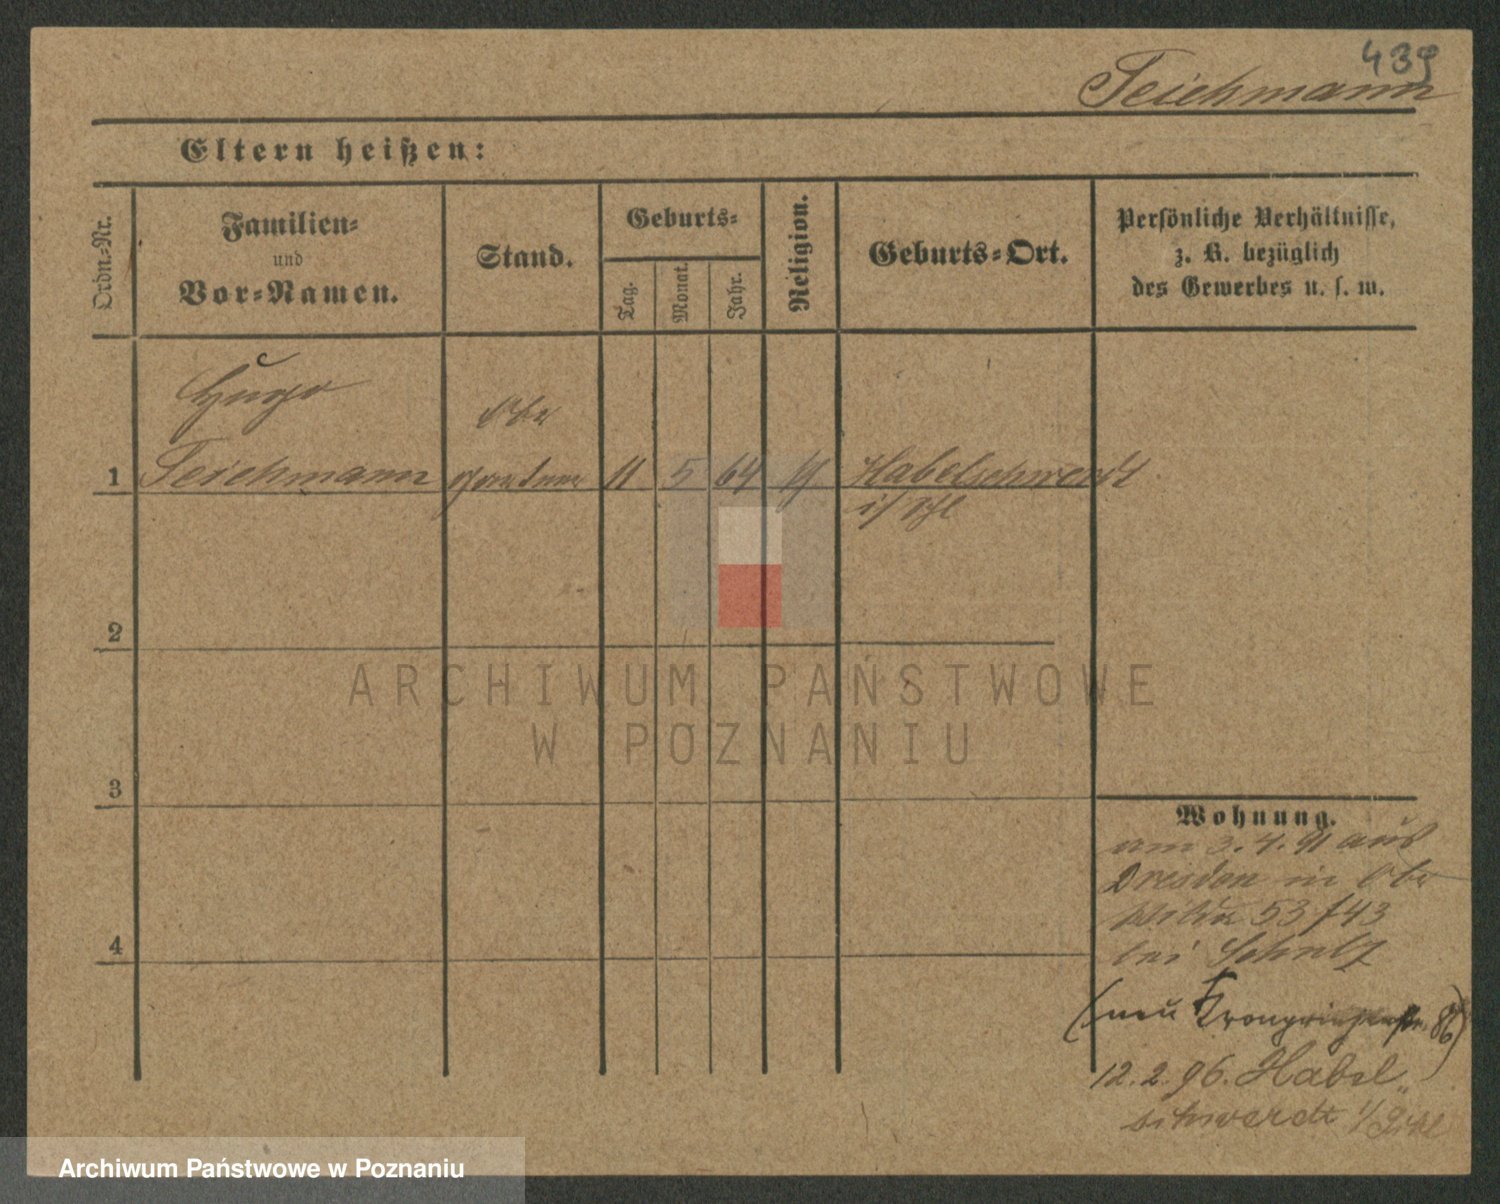 439
Teichmann
Eltern heißen:
Ordn.-Nr.
Familien-
und
Vor-Namen.
Stand.
Geburts-
Tag.
Monat.
Jahr.
Religion.
Geburts-Ort.
Persönliche Verhältnisse,
z. B. bezüglich
des Gewerbes u. s. w.
Hugo
Ober
1 Teichmann 11 5 64 Habelschwerdt
i/Schl
2
ARCHIWUM PAŃSTWOWE
W POZNANIU
3
Wohnung.
am 3.4.91 aus
Dresden in Ober
Wilda 53/43
bei Schulz
(neu Kronprinzenstr. 86)
4
12.2.96. Habel
schwerdt i/Schl
Archiwum Państwowe w Poznaniu